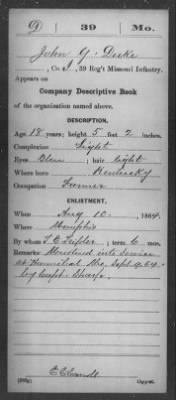 D 39 Mo.
John Y. Duke
Co. J, 39 Reg't Missouri Infantry.
Appears on
Company Descriptive Book
of the organization named above.
DESCRIPTION.
Age 18 years; height 5 feet 2 inches.
Complexion Light
Eyes Blue; hair light
Where born Kentucky
Occupation Farmer
ENLISTMENT.
When Aug 10, 1864.
Where Memphis
By whom; term 6 mos.
Remarks Mustered into Service
at Hannibal Mo. Sept 9, 64.
by Capt. Sharp.
Copyist.